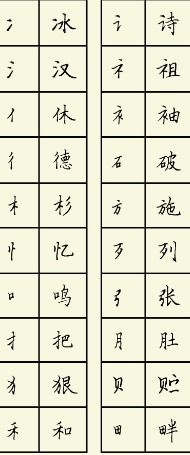 冫 冰 讠 诗
氵 汉 礻 祖
亻 休 衤 袖
彳 德 石 破
木 杉 方 施
忄 忆 歹 列
口 鸣 弓 张
扌 把 月 肚
犭 狠 贝 贮
禾 和 田 畔